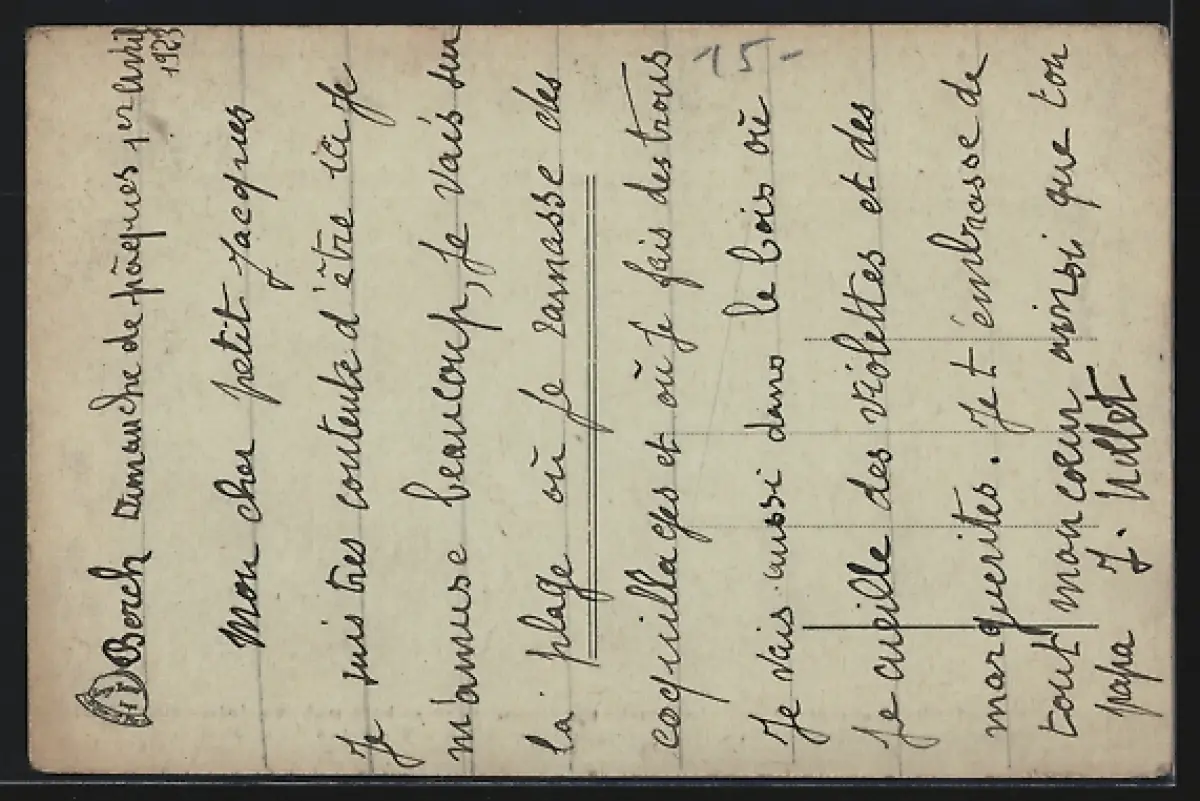 Berck Dimanche de pâques 1er avril
1923
15-
Mon cher petit Jacques
Je suis très contente d'être ici je
m'amuse beaucoup, je vais sur
la plage où je ramasse des
coquillages et où je fais des trous
Je vais aussi dans le bois où
je cueille des violettes et des
marguerites. Je t'émbrasse de
tout mon coeur ainsi que ton
papa J. Nillet